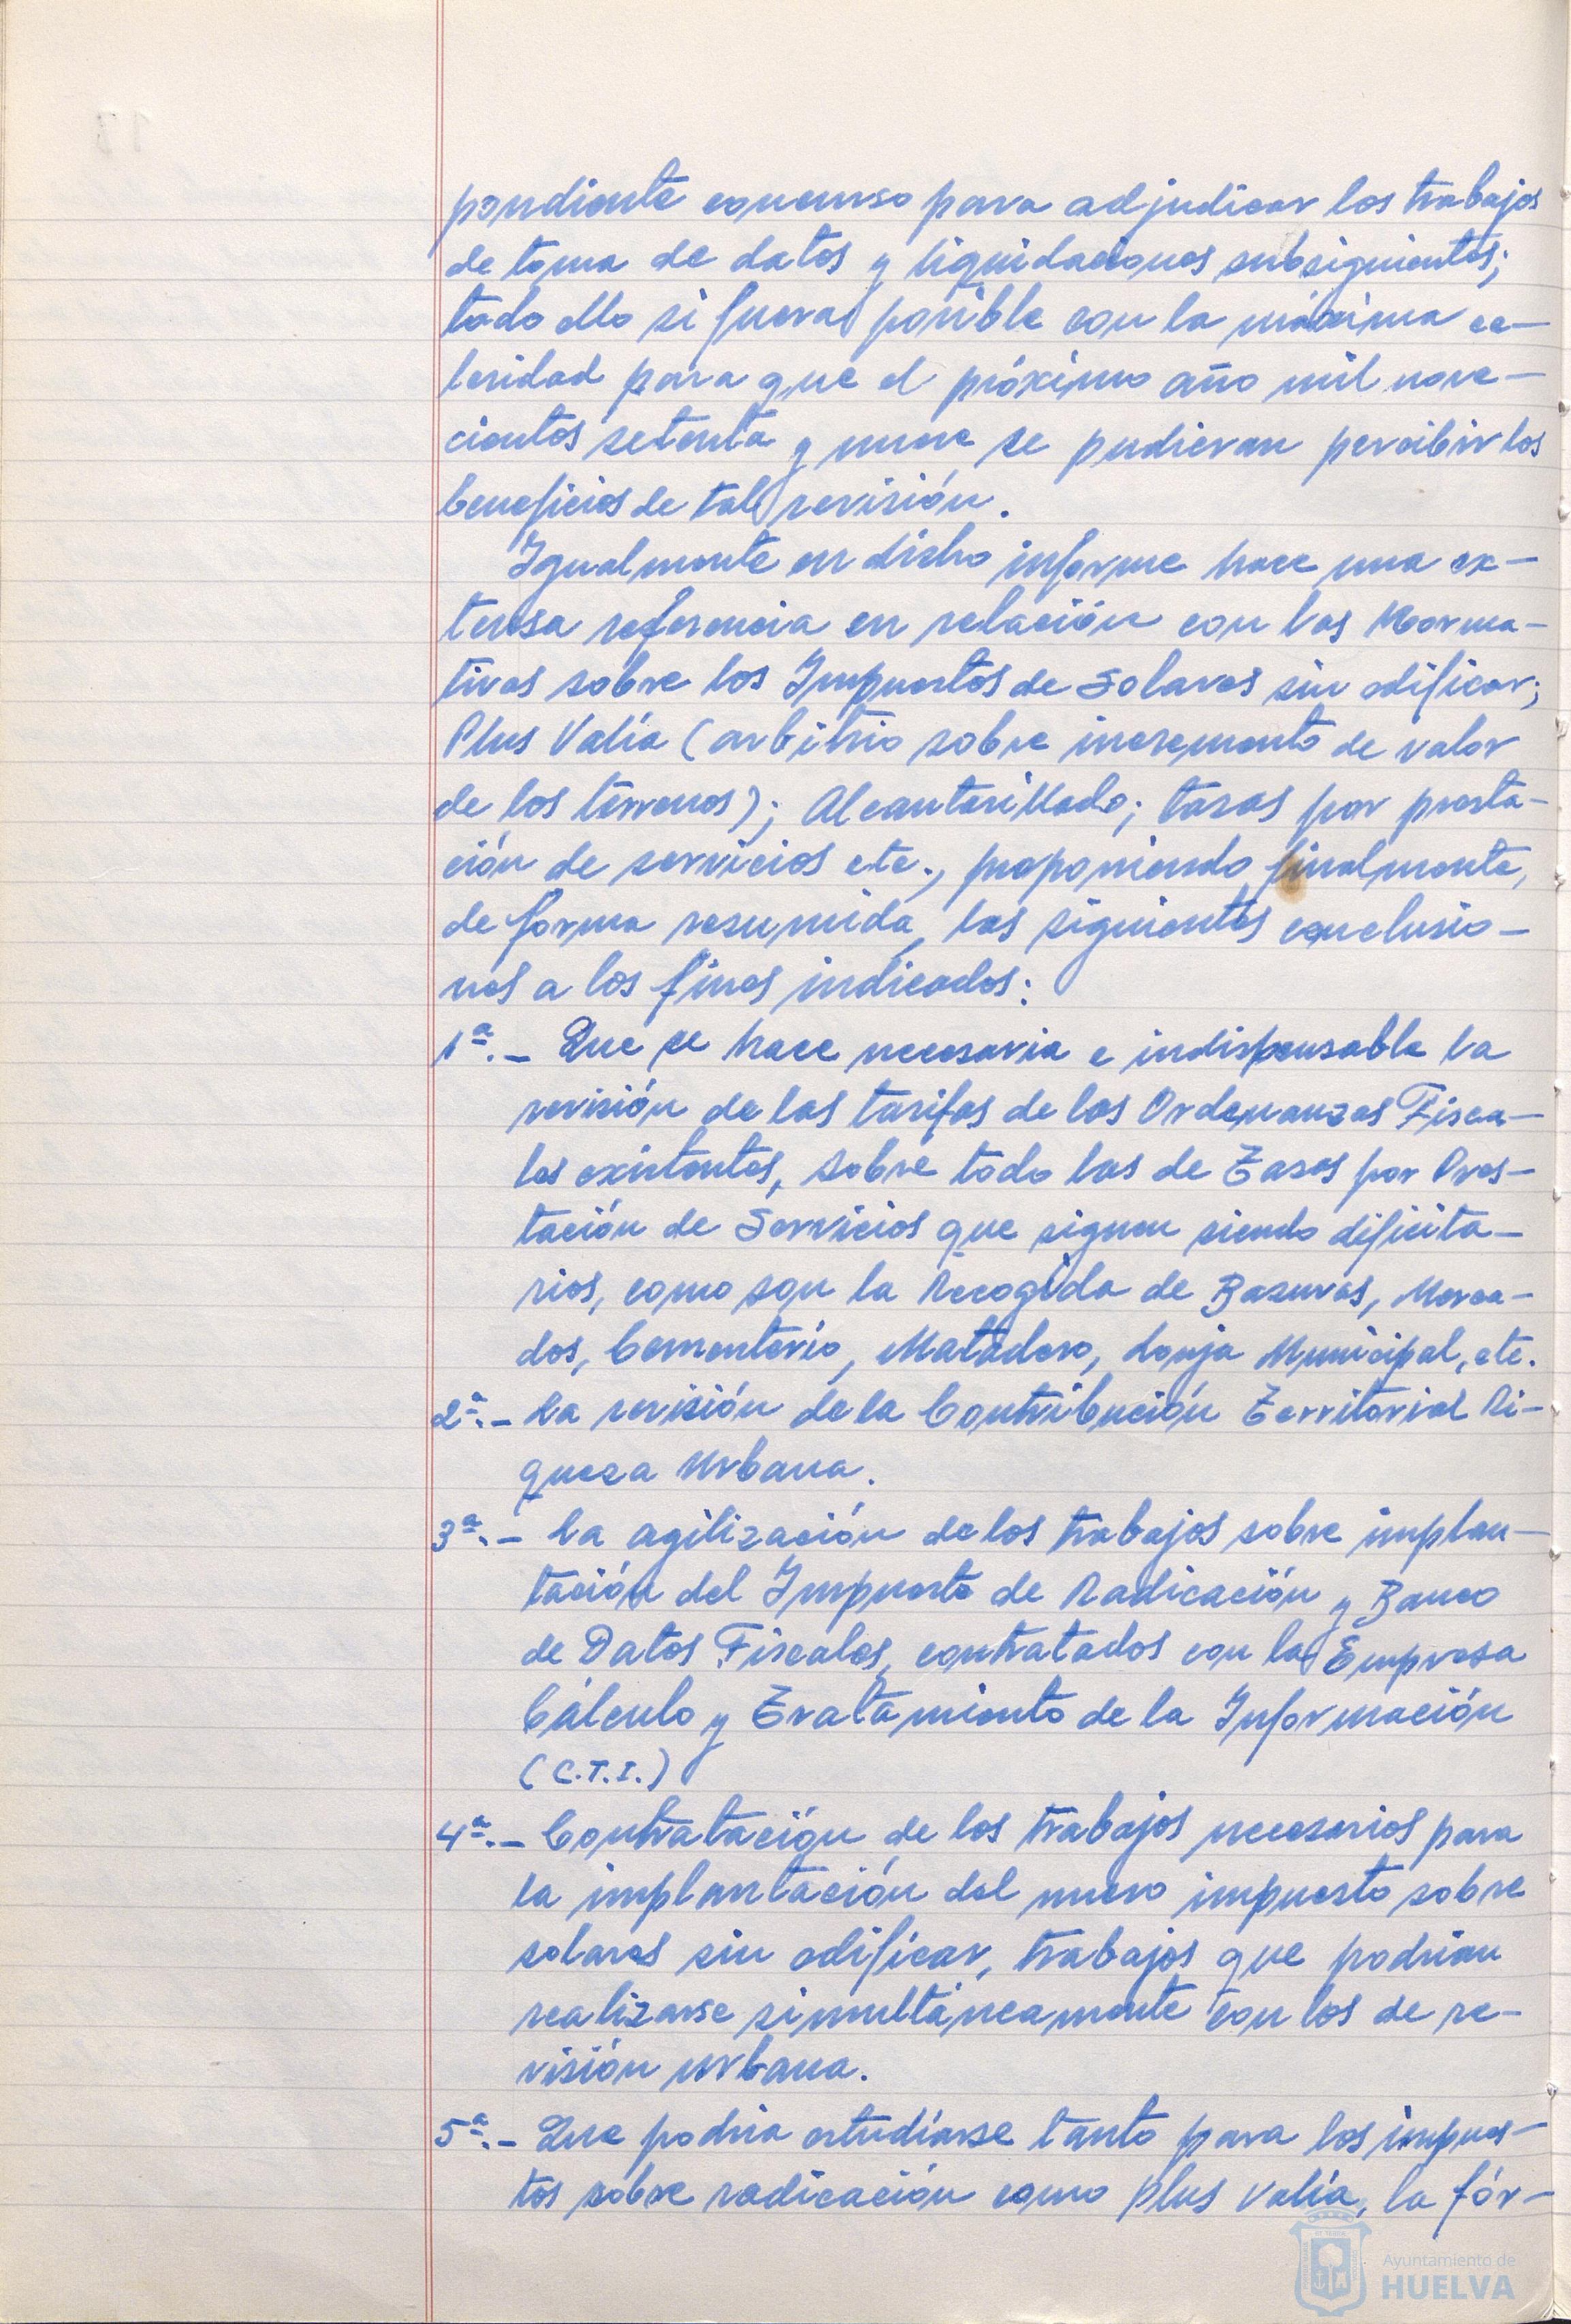 pondiente concurso para adjudicar los trabajos
de toma de datos y liquidaciones subsiguientes;
todo ello si fuera posible con la máxima ce-
leridad para que el próximo año mil nove-
cientos setenta y nueve se pudieran percibir los
beneficios de tal revisión.
Igualmente en dicho informe hace una ex-
tensa referencia en relación con las Norma-
tivas sobre los Impuestos de Solares sin edificar;
Plus Valía (arbitrio sobre incremento de valor
de los terrenos); Alcantarillado; tasas por presta-
ción de servicios etc., proponiendo finalmente,
de forma resumida, las siguientes conclusio-
nes a los fines indicados:
1ª.- Que se hace necesaria e indispensable la
revisión de las tarifas de las Ordenanzas Fisca-
les existentes, sobre todo las de Tasas por Pres-
tación de Servicios que siguen siendo deficita-
rios, como son la Recogida de Basuras, Merca-
dos, Cementerio, Matadero, Lonja Municipal, etc.
2ª.- La revisión de la Contribución Territorial Ri-
queza Urbana.
3ª.- La agilización de los trabajos sobre implan-
tación del Impuesto de Radicación y Banco
de Datos Fiscales, contratados con la Empresa
Cálculo y Tratamiento de la Información
(C.T.I.)
4ª.- Contratación de los trabajos necesarios para
la implantación del nuevo impuesto sobre
solares sin edificar, trabajos que podrían
realizarse simultáneamente con los de re-
visión urbana.
5ª.- Que podría estudiarse tanto para los impues-
tos sobre radicación como plus valía, la fór-
Ayuntamiento de
HUELVA